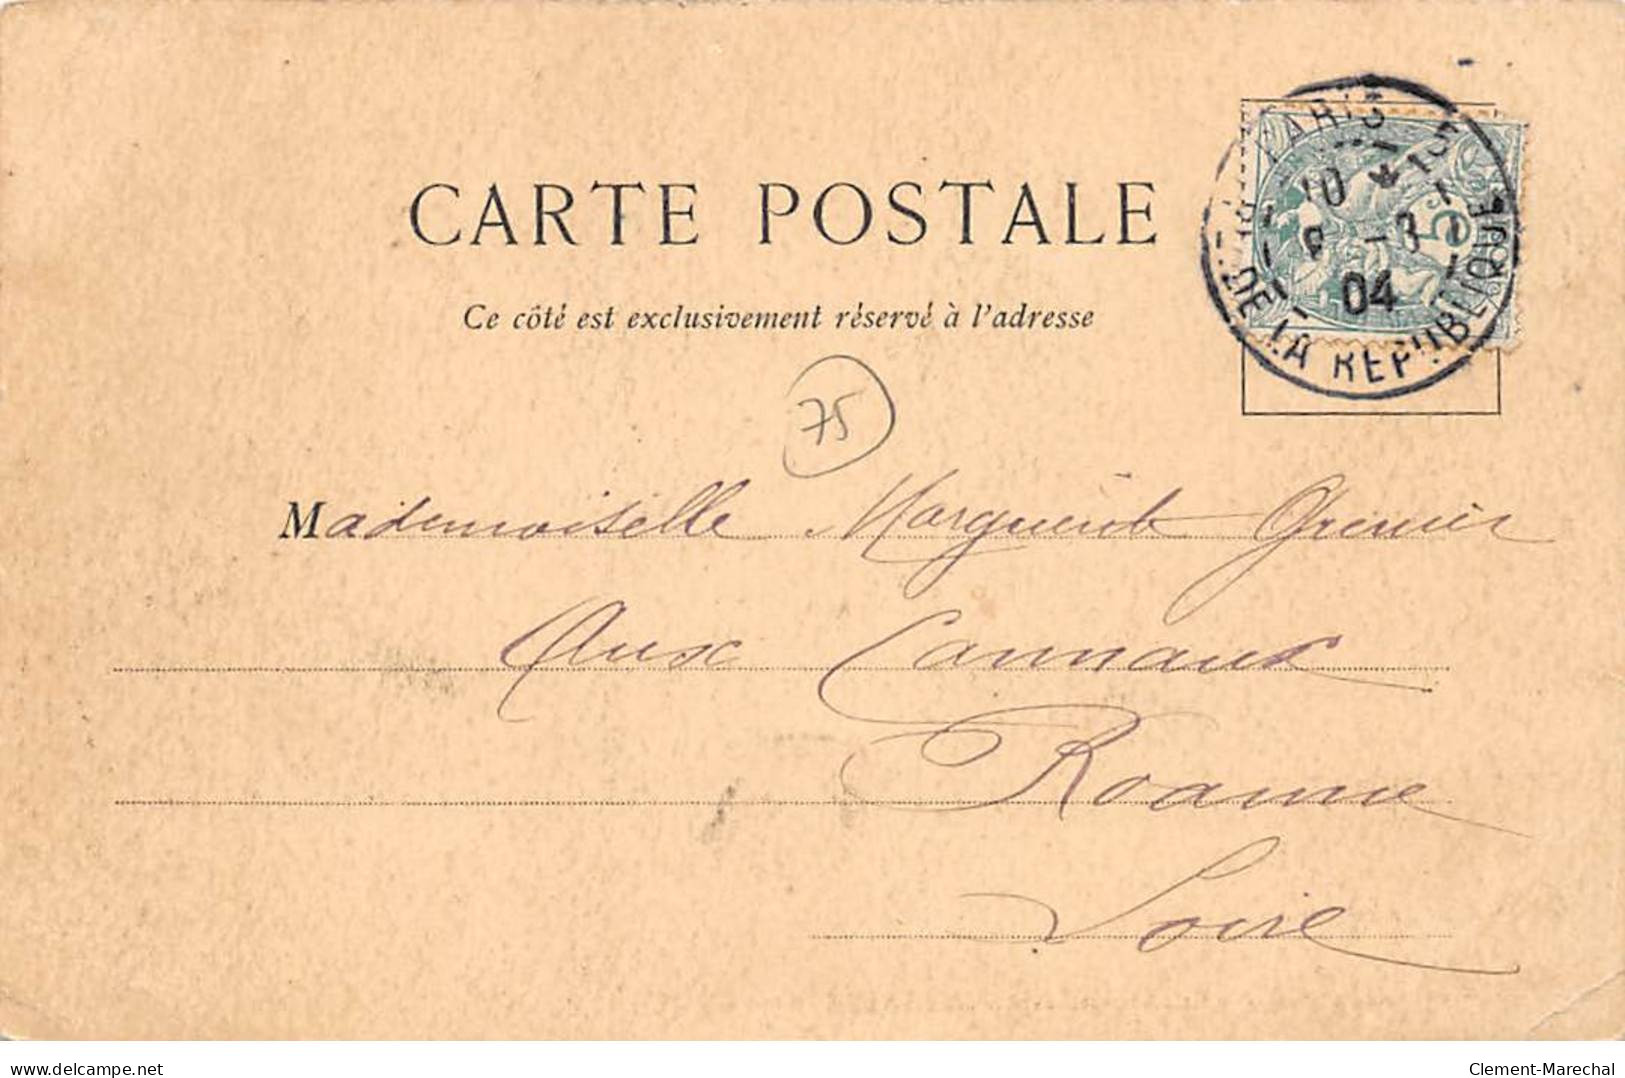 CARTE POSTALE
Ce côté est exclusivement réservé à l'adresse
PARIS
10 * 15
8 - 3
04
DE LA REPUBLIQUE
5
75
Mademoiselle Marguerite Grenier
Aux Cannaux
Roanne
Loire
delcampe.net
Clement-Marechal